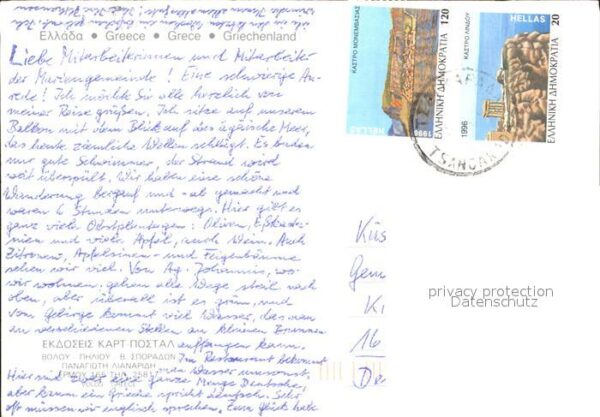 Ελλάδα • Greece • Grece • Griechenland
Liebe Mitarbeiterinnen und Mitarbeiter
der Mariengemeinde! Eine schwierige An-
rede! Ich möchte Sie alle herzlich von
meiner Reise grüßen. Ich sitze auf unserem
Balkon mit dem Blick auf das ägäische Meer,
das heute ziemliche Wellen schlägt. Es baden
nur gute Schwimmer, der Strand wird
weit überspült. Wir haben eine schöne
Wanderung bergauf und -ab gemacht und
waren 6 Stunden unterwegs. Hier gibt es
ganz viele Obstplantagen: Oliven,
und viele Äpfel, auch Wein. Auch
Zitronen, Apfelsinen- und Feigenbäume
sehen wir viel. Von Ag. Johannis, wo
wir wohnen, gehen alle Wege steil nach
oben, aber überall ist es grün, und
vom Gebirge kommt viel Wasser, das man
an verschiedenen Stellen an kleinen Brunnen
auffangen kann.
ΕΚΔΟΣΕΙΣ ΚΑΡΤ-ΠΟΣΤΑΛ
ΒΟΛΟΥ - ΠΗΛΙΟΥ - Β. ΣΠΟΡΑΔΩΝ
ΠΑΝΑΓΙΩΤΗ ΛΙΑΝΑΡΙΔΗ
Im Restaurant bekommt
man Wasser umsonst.
Hier sind zwar eine ganze Menge Deutsche,
aber kaum ein Grieche spricht deutsch. Sehr
oft müssen wir englisch sprechen. Zum Glück habe
ΚΑΣΤΡΟ ΜΟΝΕΜΒΑΣΙΑΣ
HELLAS
1996
ΕΛΛΗΝΙΚΗ ΔΗΜΟΚΡΑΤΙΑ 120
HELLAS
ΚΑΣΤΡΟ ΛΙΝΔΟΥ
1996
ΕΛΛΗΝΙΚΗ ΔΗΜΟΚΡΑΤΙΑ 20
Küs
Gem
Ki
16
De
privacy protection
Datenschutz